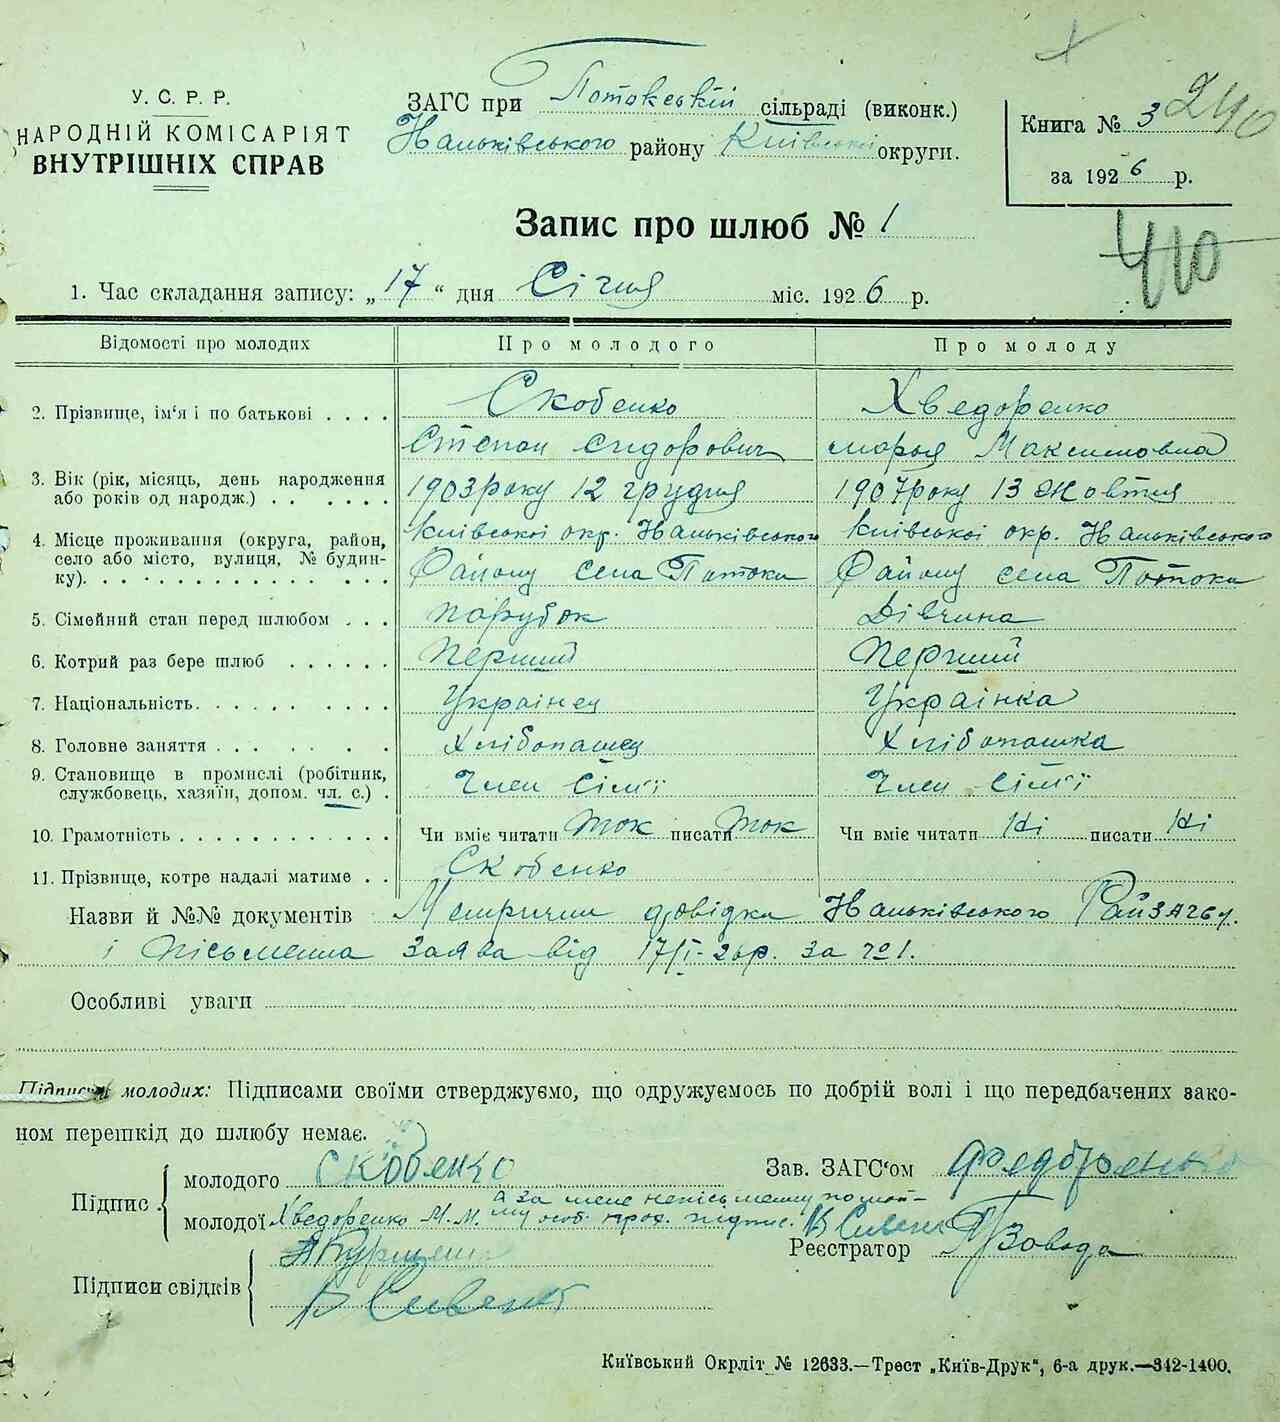 У. С. Р. Р.
НАРОДНІЙ КОМІСАРІЯТ
ВНУТРІШНІХ СПРАВ
ЗАГС при Потокській сільраді (виконк.)
Наньківського району Київської округи.
Книга № 3
240
за 1926 р.
Запис про шлюб № 1
410
1. Час складання запису: „17“ дня Січня міс. 1926 р.
Відомості про молодих Про молодого Про молоду
2. Прізвище, ім‘я і по батькові . . . . Скобенко Хведоренко
Степан Сидорович Марья Максимовна
3. Вік (рік, місяць, день народження або років од народж.) . . . . . . 1903 року 12 грудня 1907 року 13 Жовтня
4. Місце проживання (округа, район, село або місто, вулиця, № будинку). Київської окр. Наньківського Київської окр. Наньківського
Району села Потока Району села Потока
5. Сімейний стан перед шлюбом . . . парубок Дівчина
6. Котрий раз бере шлюб . . . . . . Перший Перший
7. Національність. . . . . . . . . . Українец Українка
8. Головне заняття . . . . . . . . Хлібопашец Хлібопашка
9. Становище в промислі (робітник, службовець, хазяїн, допом. чл. с.) . Член Сім'ї Член Сім'ї
10. Грамотність . . . . . . . . . . . Чи вміє читати Так писати Так Чи вміє читати Ні писати Ні
11. Прізвище, котре надалі матиме . . Скобенко
Назви й №№ документів Метрични довідки Наньківського
і письменна заява від 17/I-26р. за № 1.
Особливі уваги
Підписи молодих: Підписами своїми стверджуємо, що одружуємось по добрій волі і що передбачених зако-
ном перешкід до шлюбу немає.
Підпис молодого Скобенко
молодої Хведоренко М. М. а за мене неписьменну по моій-
му особ. прос. підпис. В Сивенк
Зав. ЗАГС‘ом Федоренко
Реєстратор Зовода
Підписи свідків
В Сивенк
Київський Окрліт № 12633.—Трест „Київ-Друк“, 6-а друк.—342-1400.